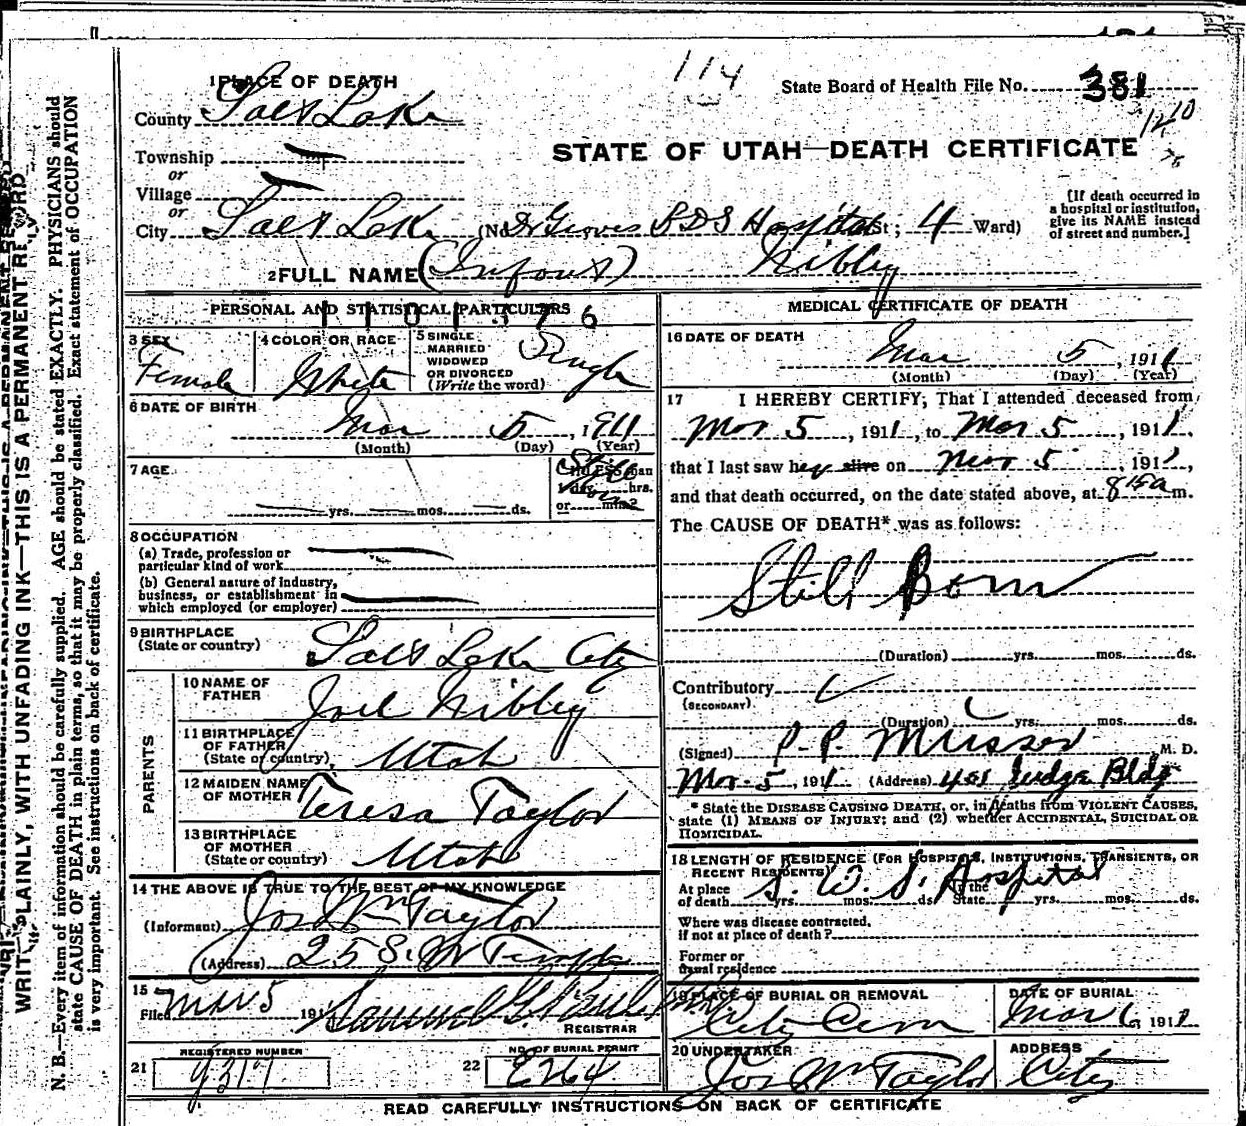 114
State Board of Health File No. 381
1 PLACE OF DEATH
County Salt Lake
Township
or
Village
or
City Salt Lake (No. Dr Groves L D S Hospital St; 4 Ward)
STATE OF UTAH—DEATH CERTIFICATE
[If death occurred in
a hospital or institution,
give its NAME instead
of street and number.]
2 FULL NAME (Infant) Nibley
PERSONAL AND STATISTICAL PARTICULARS
3 SEX
Female
4 COLOR OR RACE
White
5 SINGLE
MARRIED
WIDOWED
OR DIVORCED
(Write the word)
Single
6 DATE OF BIRTH
Mar 5, 1911
(Month) (Day) (Year)
7 AGE
yrs. mos. ds.
Still Born
hrs.
or min?
8 OCCUPATION
(a) Trade, profession or
particular kind of work
(b) General nature of industry,
business, or establishment in
which employed (or employer)
9 BIRTHPLACE
(State or country)
Salt Lake City
PARENTS
10 NAME OF
FATHER
Joel Nibley
11 BIRTHPLACE
OF FATHER
(State or country)
Utah
12 MAIDEN NAME
OF MOTHER
Teresa Taylor
13 BIRTHPLACE
OF MOTHER
(State or country)
Utah
14 THE ABOVE IS TRUE TO THE BEST OF MY KNOWLEDGE
(Informant) Jos Wm Taylor
(Address) 25 S. W Temple
15
Filed Mar 5 191 Samuel G.
REGISTRAR
21 REGISTERED NUMBER
22 NO. OF BURIAL PERMIT
E264
MEDICAL CERTIFICATE OF DEATH
16 DATE OF DEATH
Mar 5, 1911
(Month) (Day) (Year)
17 I HEREBY CERTIFY, That I attended deceased from
Mar 5, 1911, to Mar 5, 1911,
that I last saw her alive on Mar 5, 1911,
and that death occurred, on the date stated above, at 8 15 a m.
The CAUSE OF DEATH* was as follows:
Still Born
(Duration) yrs. mos. ds.
Contributory
(SECONDARY)
(Duration) yrs. mos. ds.
(Signed) P. P. Musser M. D.
Mar 5, 1911 (Address) 401 Judge Bldg
* State the DISEASE CAUSING DEATH, or, in deaths from VIOLENT CAUSES,
state (1) MEANS OF INJURY; and (2) whether ACCIDENTAL, SUICIDAL OR
HOMICIDAL.
18 LENGTH OF RESIDENCE (FOR HOSPITALS, INSTITUTIONS, TRANSIENTS, OR
RECENT RESIDENTS)
At place In the
of death yrs. mos. ds. State yrs. mos. ds.
Hospital
Where was disease contracted,
if not at place of death?
Former or
usual residence
19 PLACE OF BURIAL OR REMOVAL
City Cem
DATE OF BURIAL
Mar 6, 1911
20 UNDERTAKER
Jos Wm Taylor
ADDRESS
City
READ CAREFULLY INSTRUCTIONS ON BACK OF CERTIFICATE
WRITE PLAINLY, WITH UNFADING INK—THIS IS A PERMANENT RECORD
N. B.—Every item of information should be carefully supplied. AGE should be stated EXACTLY. PHYSICIANS should
state CAUSE OF DEATH in plain terms, so that it may be properly classified. Exact statement of OCCUPATION
is very important. See instructions on back of certificate.